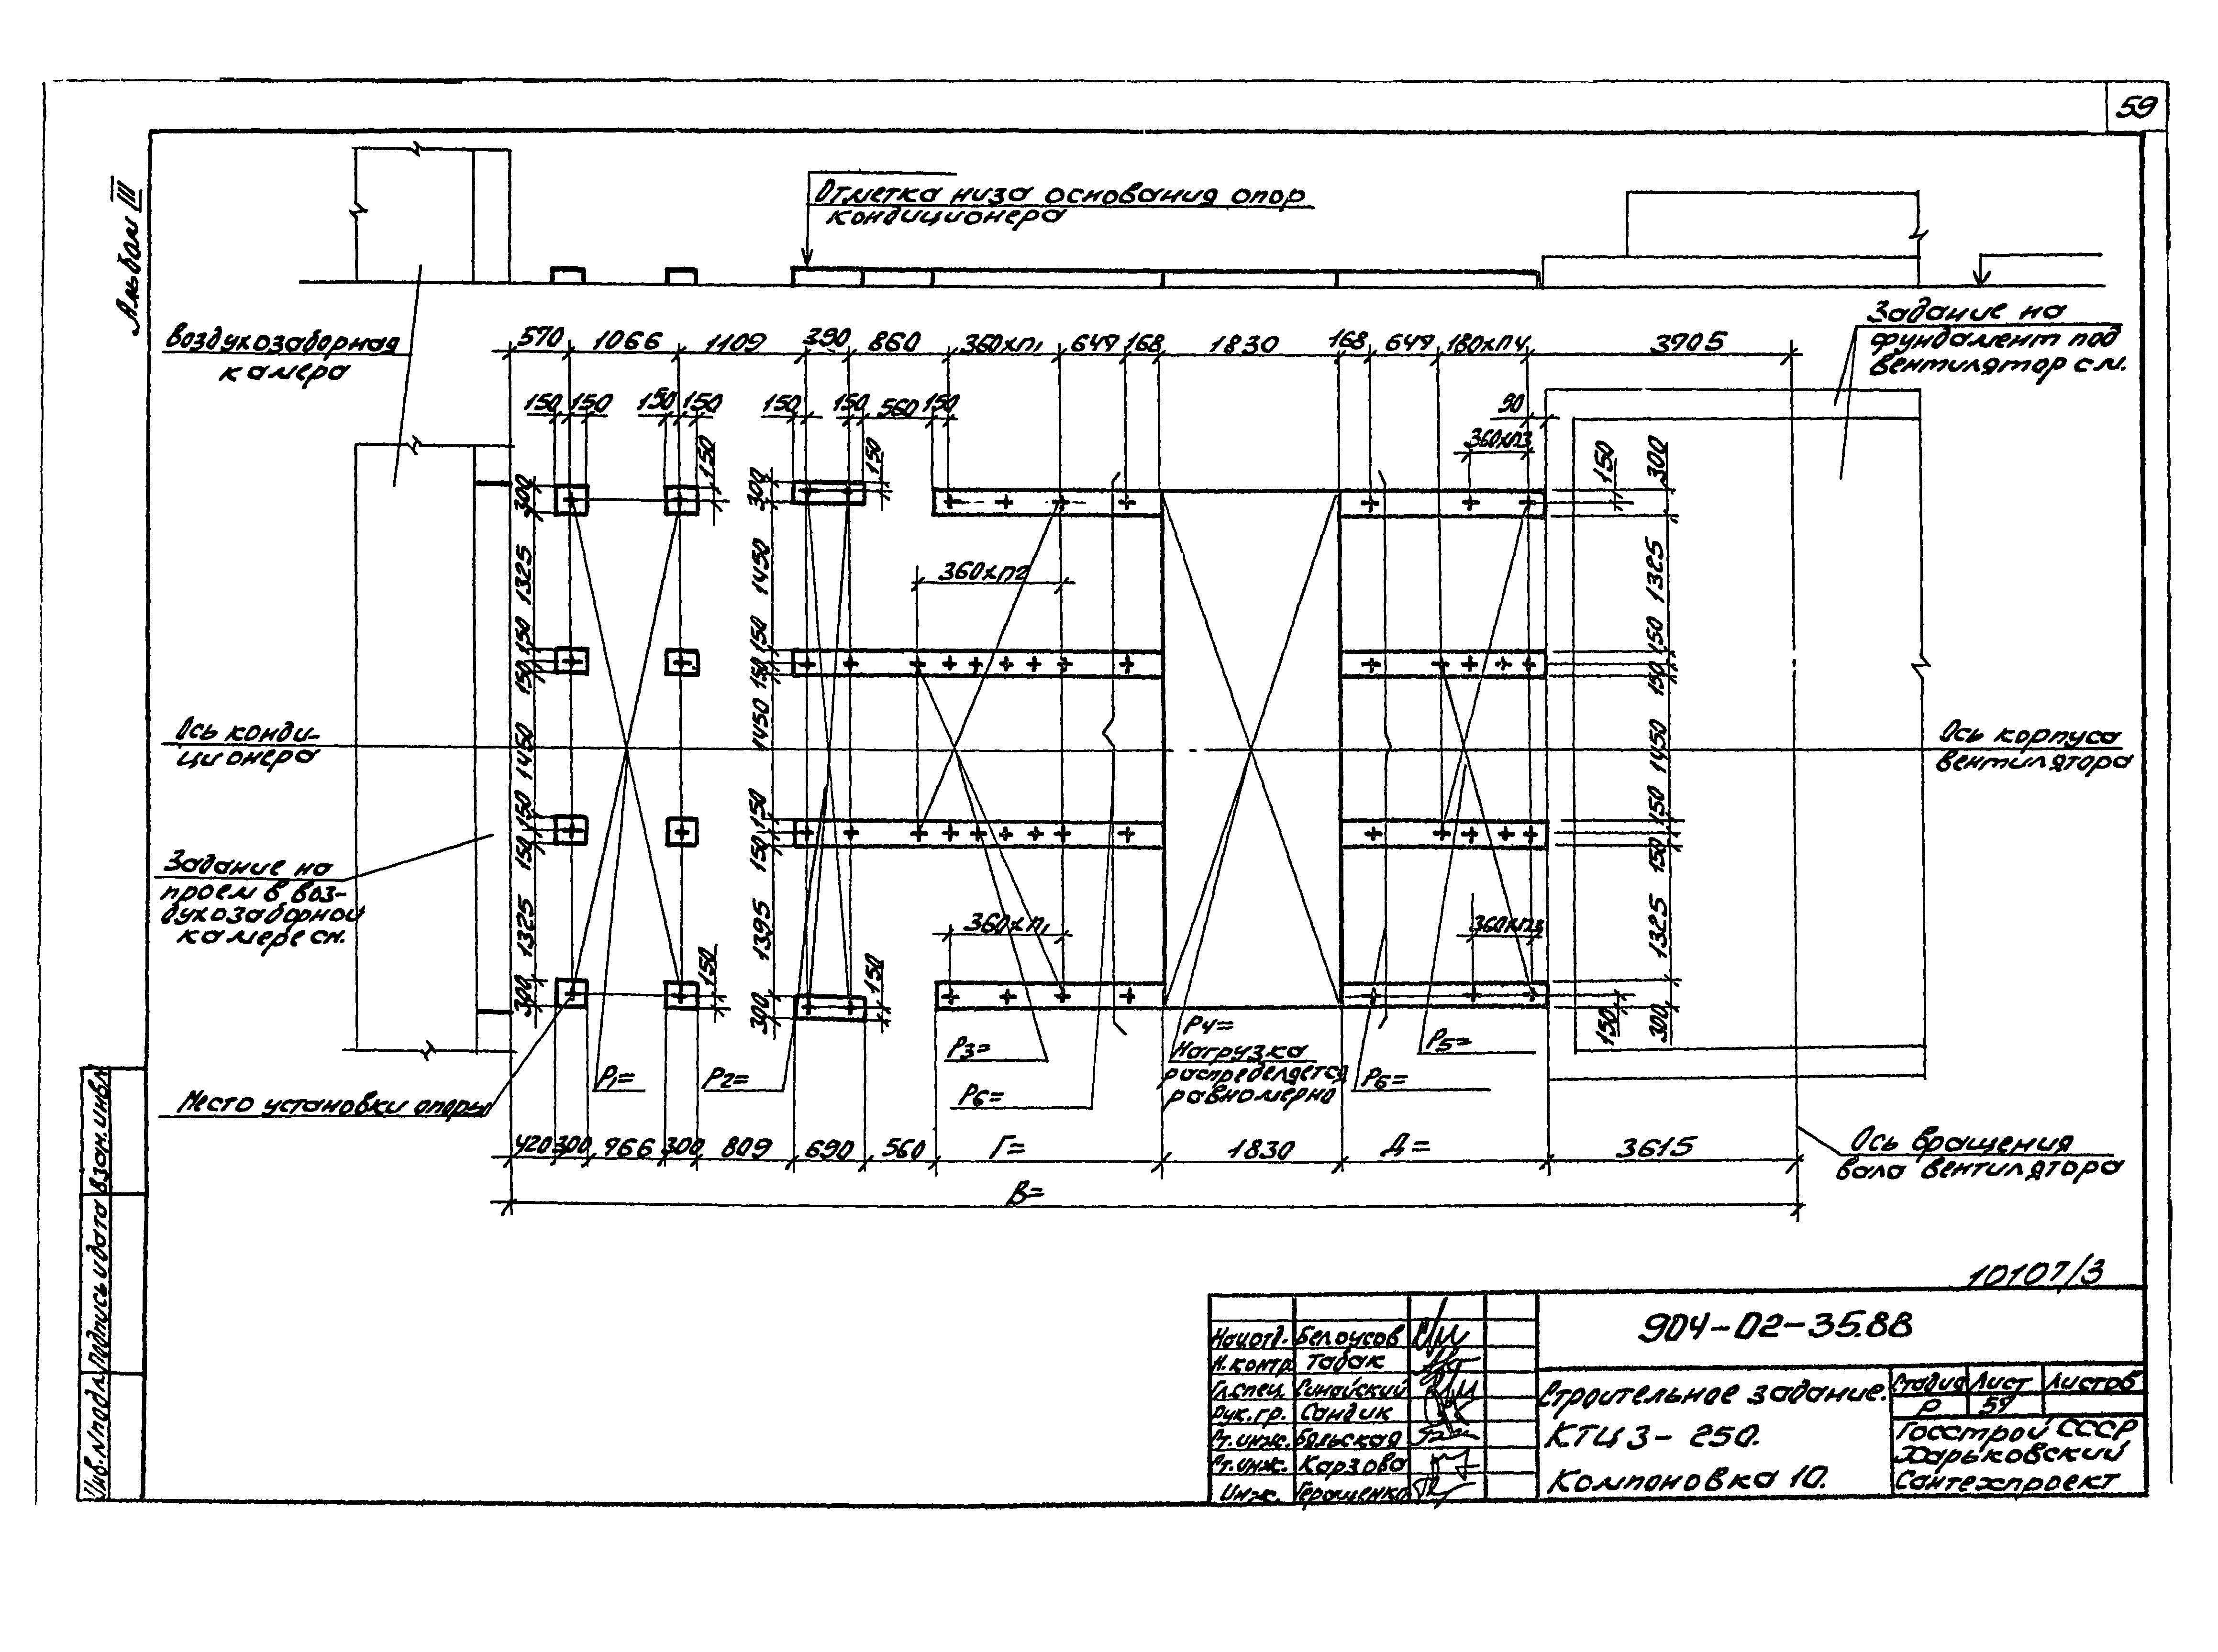 59
Альбом III
Отметка низа основания опор
кондиционера
Воздухозаборная
камера
Задание на
фундамент под
вентилятор см.
570 1066 1109 390 860 360хп1 649 168 1830 168 649 180хп4 3705
150 150 150 150 150 150 560 150 90
360хп3
150 150 150
300 300 300
1325 1450 1325
360хп2
150 150 150
150 150 150
Ось конди-
ционера
1450 1450 1450
Ось корпуса
вентилятора
150 150 150
150 150 150
Задание на
проем в воз-
духозаборной
камере см.
1325 1395 1325
360хп1 360хп3
150 150 150
300 300 300
Место установки опоры
Р1=
Р2=
Р3=
Р6=
Р4=
Нагрузка
распределяется
равномерно
Р5=
Р6=
420 300 766 300 809 690 560 Г= 1830 Д= 3615
В=
Ось вращения
вала вентилятора
Инв.N подл. Подпись и дата Взам.инв.N
10107/3
904-02-35.88
Нач.отд. Белоусов
Н.контр. Табак
Гл.спец. Синайский
Рук.гр. Сандик
Ст.инж. Бяльская
Ст.инж. Карзова
Инж. Геращенко
Строительное задание.
КТЦ 3- 250.
Компоновка 10.
Стадия Лист Листов
Р 59
Госстрой СССР
Харьковский
Сантехпроект